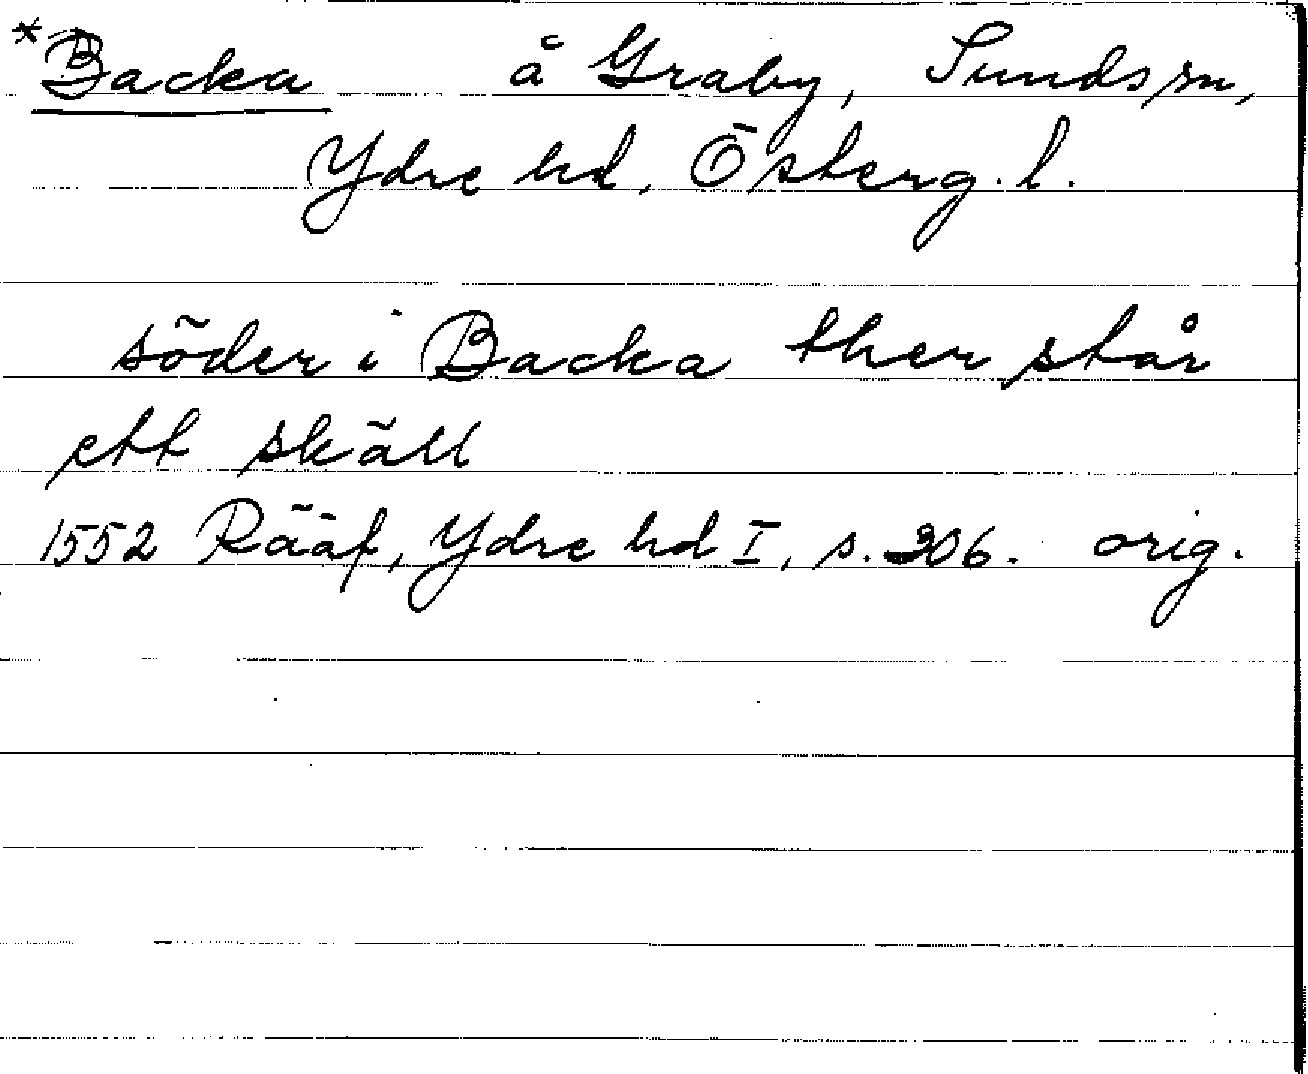 *Backa å Graby, Sunds sn,
Ydre hd, Österg. l.
söder i Backa ther står
ett skäll
1552 Rääf, Ydre hd I, s. 306. orig.